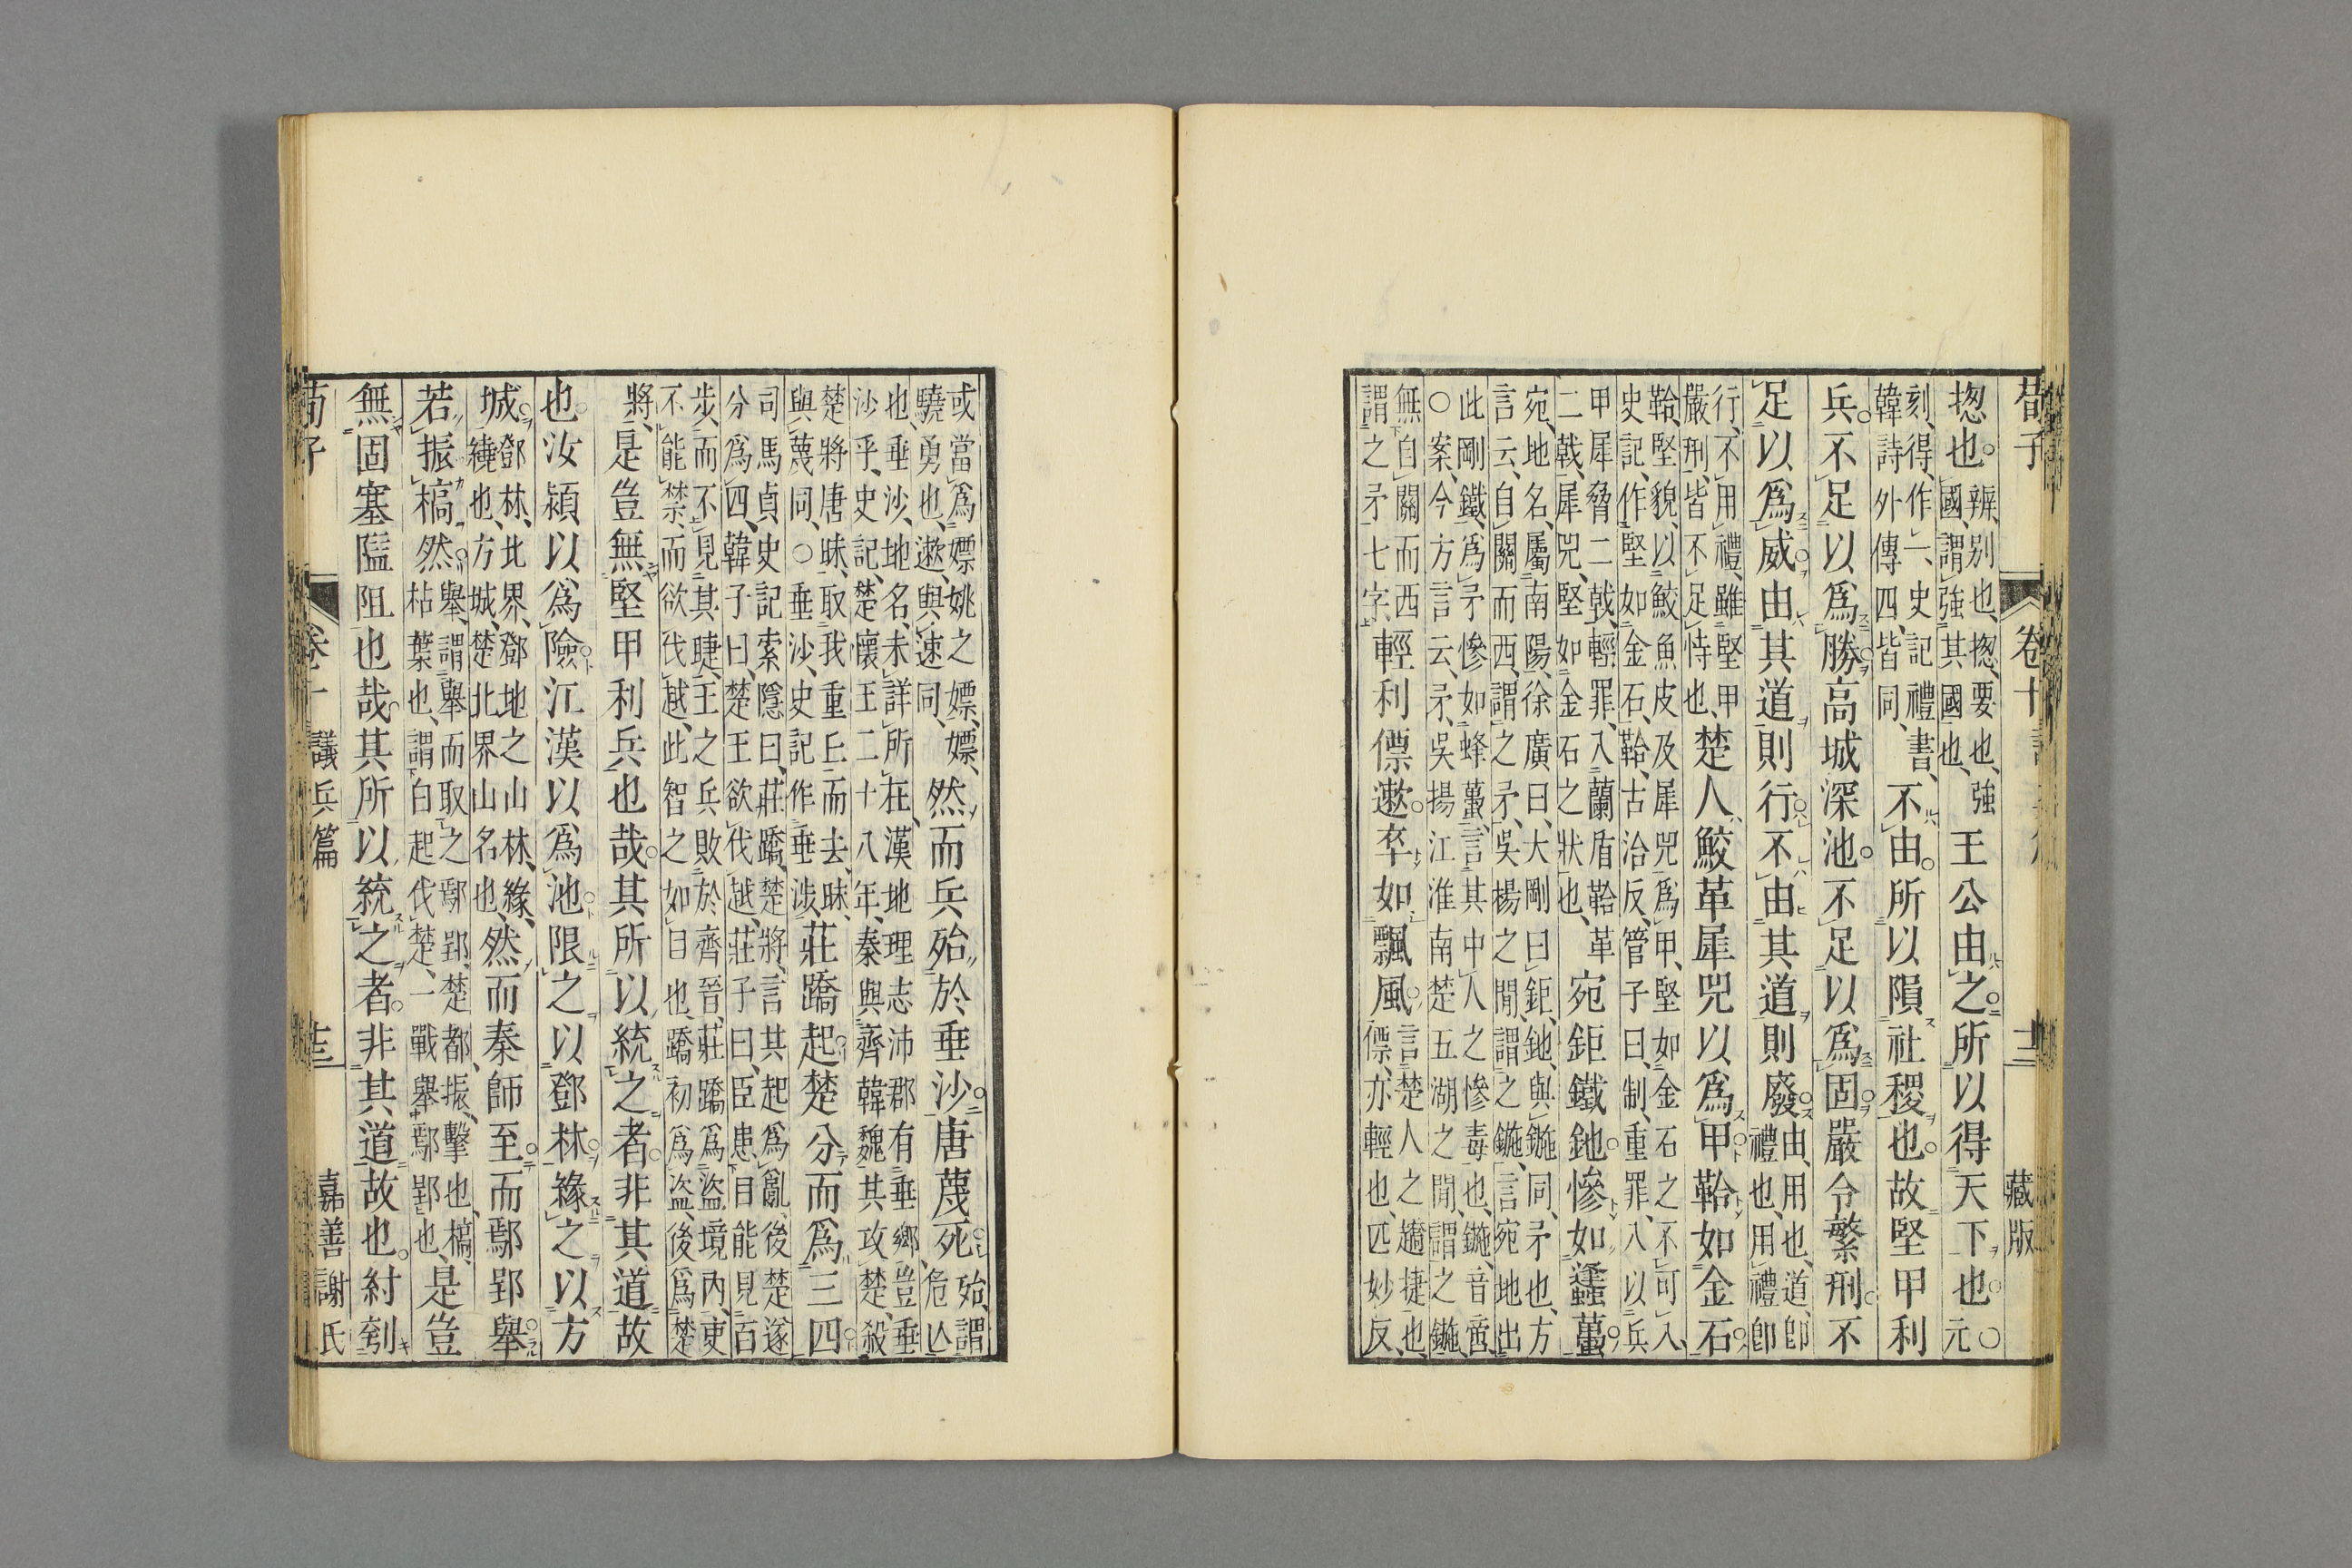 荀子 卷十 十二 藏版
揔也。辨、别也、揔、要也、強
國、謂強其國也、王公由之。所以得天下也。○元
刻、得、作一、史記禮書、
韓詩外傳四、皆同、不由。所以隕社稷也。故堅甲利
兵。不足以爲勝。高城深池。不足以爲固。嚴令繁刑。不
足以爲威。由其道則行。不由其道則廢。由、用也、道、卽
禮也、用禮卽
行、不用禮、雖堅甲
嚴刑、皆不足恃也、楚人鮫革犀兕以爲甲。鞈如金石。
鞈、堅貌、以鮫魚皮及犀兕爲甲、堅如金石之不可入、
史記、作堅如金石、鞈、古洽反、管子曰、制重罪、入以兵
甲犀脅二戟、輕罪、入蘭盾鞈革
二戟、犀兕、堅如金石之狀也、宛鉅鐵釶。慘如蠭蠆。
宛、地名、屬南陽、徐廣曰、大剛曰鉅、釶與鍦同、矛也、方
言云、自關而西、謂之矛、吳楊之閒、謂之鍦、言宛地出
此剛鐵、爲矛慘如蜂蠆、言其中人之慘毒也、鍦、音啻、
○案、今方言云、矛、吳揚江淮南楚五湖之閒、謂之鍦、
無自關而西
謂之矛七字、輕利僄遬。卒如飄風。言楚人之趫捷也、
僄、亦輕也、匹妙反、
或當爲嫖姚之嫖、嫖、
驍勇也、遬、與速同、然而兵殆於垂沙。唐蔑死。殆、謂
危亾
也、垂沙、地名、未詳所在、漢地理志沛郡有垂鄉、豈垂
沙乎、史記、楚懷王二十八年、秦與齊韓魏共攻楚、殺
楚將唐昧、取我重丘而去、昧、
與蔑同、○垂沙、史記作垂涉、莊蹻起。楚分而爲三四。
司馬貞史記索隱曰、莊蹻、楚將、言其起爲亂、後楚遂
分爲四、韓子曰、楚王欲伐越、莊子曰、臣患目能見百
步、而不見其睫、王之兵敗於齊晉、莊蹻爲盜境內、吏
不能禁、而欲伐越、此智之如目也、蹻初爲盜、後爲楚
將、是豈無堅甲利兵也哉。其所以統之者。非其道故
也。汝潁以爲險。江漢以爲池。限之以鄧林。緣之以方
城。鄧林、北界、鄧地之山林、緣、
繞也、方城、楚北界山名也、然而秦師至。而鄢郢舉。
若振槁然。舉、謂舉而取之、鄢郢、楚都、振、擊也、槁、
枯葉也、謂白起伐楚、一戰舉鄢郢也、是豈
無固塞隘阻也哉。其所以統之者。非其道故也。紂刳
荀子 卷十 議兵篇 十三 嘉善謝氏